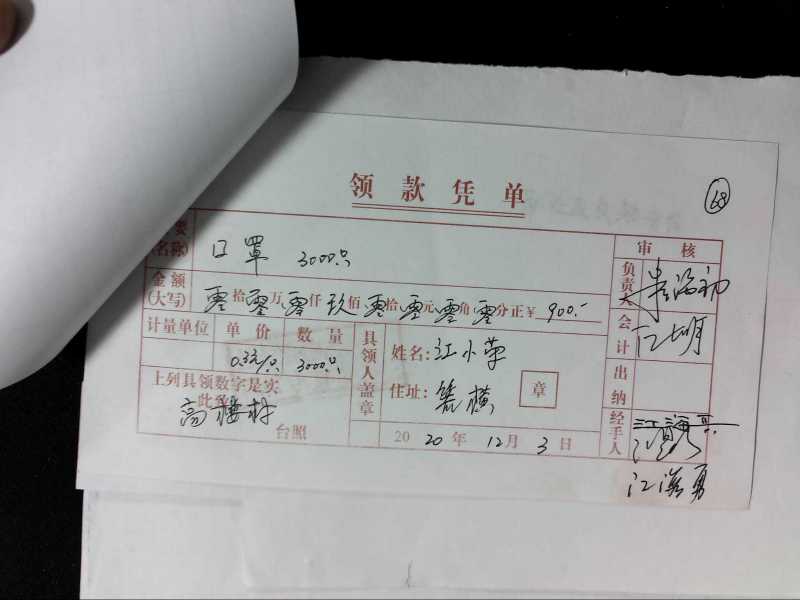 领款凭单
68
要
(名称) 口罩 3000只
审核
金额
(大写) 零拾零万零仟玖佰零拾零元零角零分正¥ 900.-
负责人
计量单位 单价 数量
0.3元/只 3000只
具领人盖章
姓名:江小华
住址: 横
章
会计
上列具领数字是实
此致
高楼村 台照
2020年12月3日
出纳
经手人
江海勇